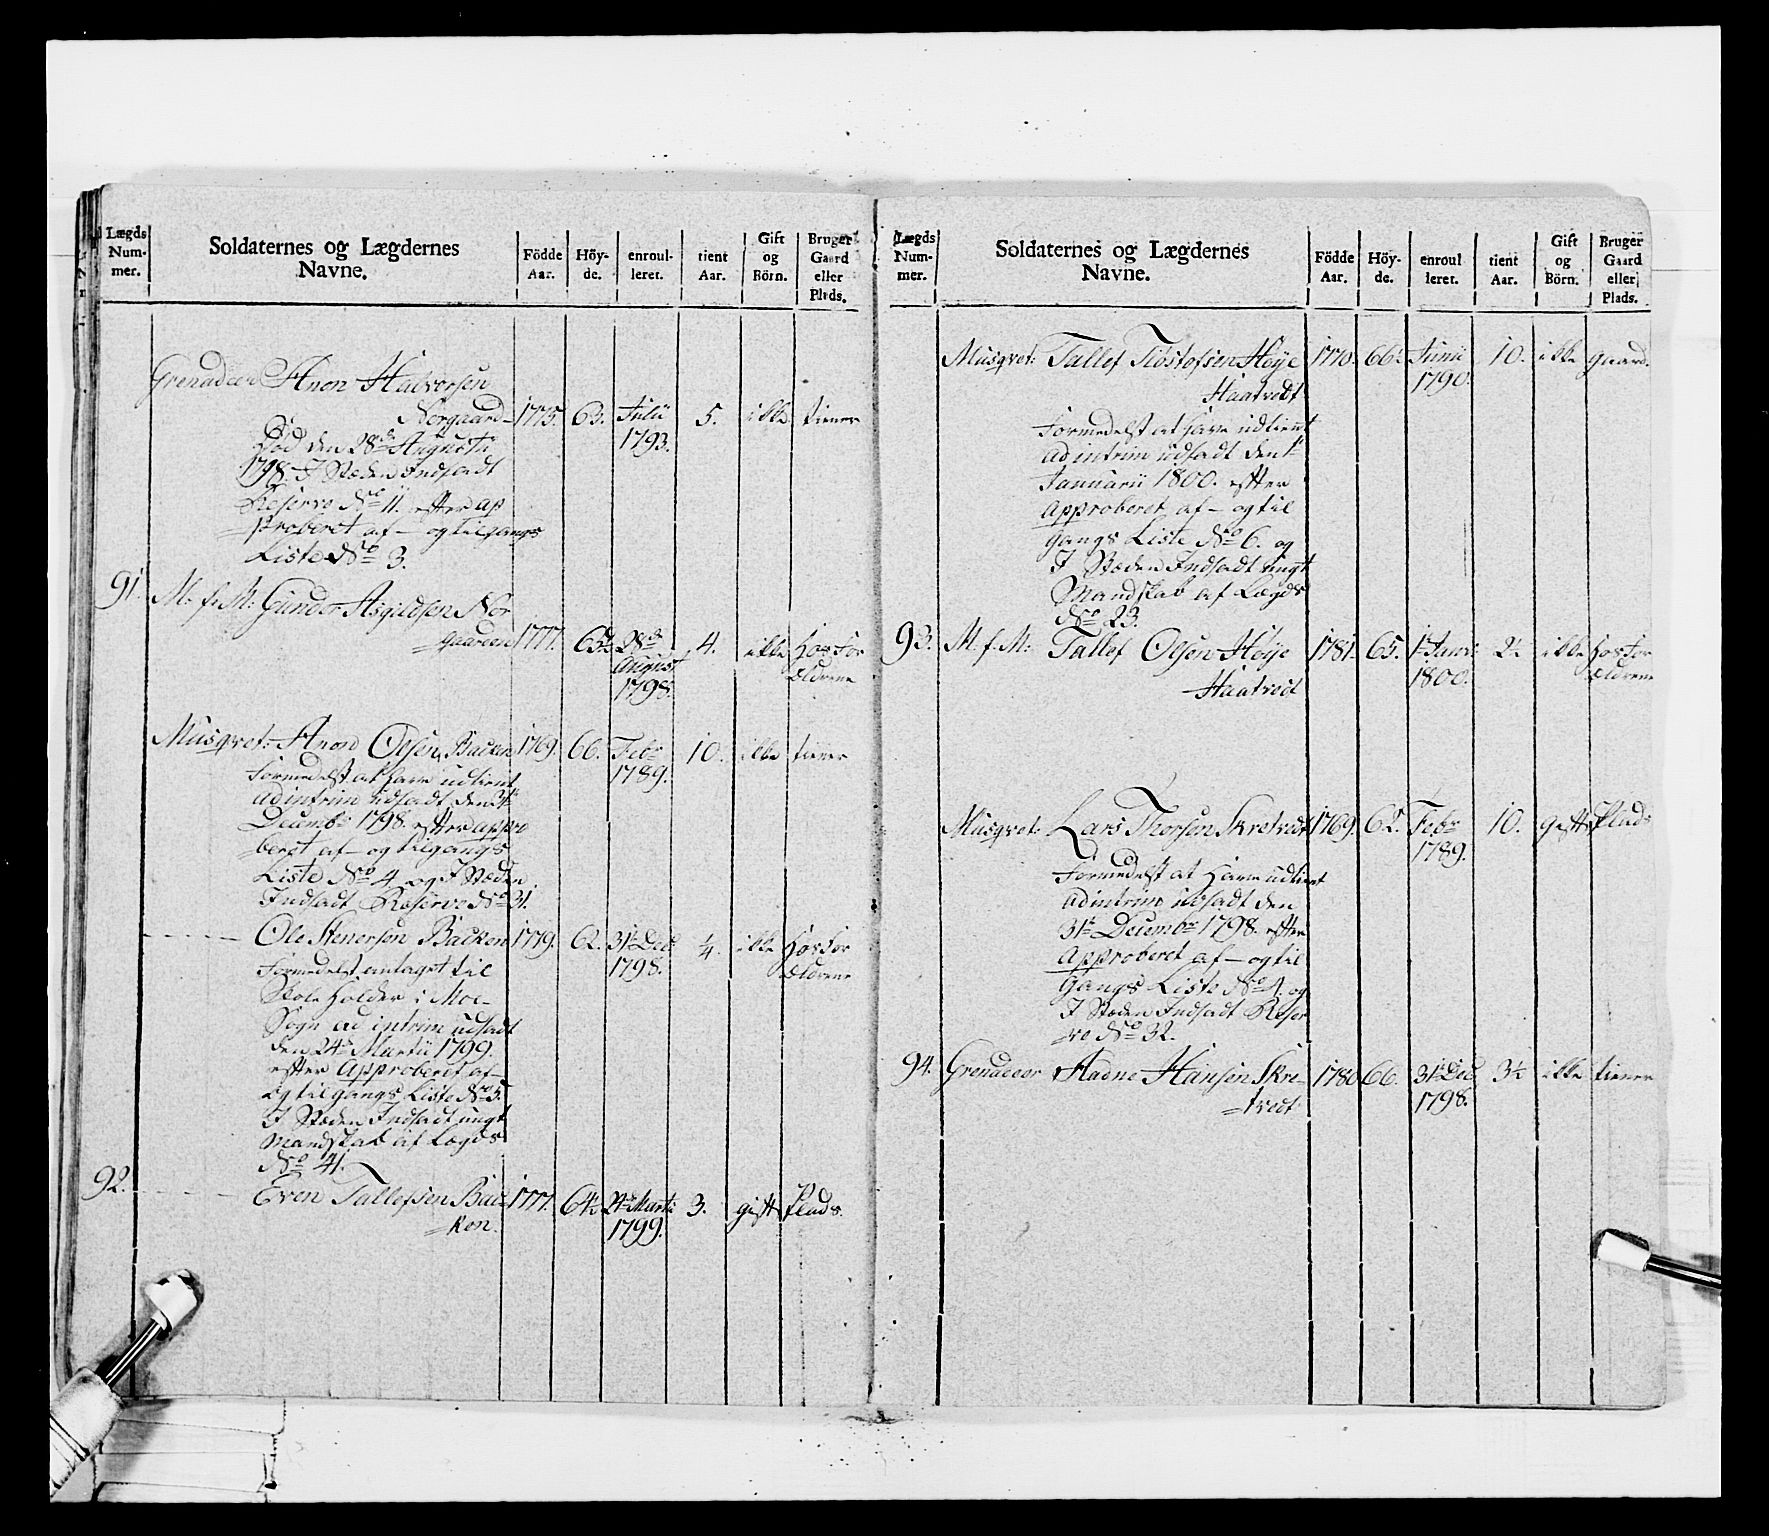 Lægds Num- mer.
Soldaternes og Lægdernes Navne.
Födde Aar.
Höy- de.
enroul- leret.
tient Aar.
Gift og Börn.
Bruger Gaard eller Plads.
Grenadeer Anon Halvorsen
Norgaard 1775. 63. Julii 5. ikke tiener
1793.
Död den 28de Augusti
1798. I Stæden Indsadt
Reserve No 11. efter ap
proberet af- og tilgangs
Liste No 3.
91. M: f: M: Gunder Asguldsen Nor
gaarden 1777. 28de 4. ikke hos For
August ældrene
1798.
Musqvet: Anon Olsen Backen 1769. 66. Febr 10. ikke tiener
1789.
Formedelst at have udtient
ad intrim udsadt den 31te
Decembr 1798. efter appro
beret af- og tilgangs
Liste No 4 og I Stæden
Indsadt Reserve No 31.
Ole Stenersen Backen 1779. 62. 31te Dec 1/4. ikke hos For
1798. ældrene
Formedelst antaget til
Skole Holder i Moe
Sogn ad intrim udsadt
den 24de Martii 1799.
efter Approberet af-
og tilgangs Liste No 5.
I Stæden Indsadt ungt
Mandskab af Lægds
No 41.
92. Even Tallefsen Bac 1777. 24de Martii 3. gift Plads.
ken. 1799.
Lægds Num- mer.
Soldaternes og Lægdernes Navne.
Födde Aar.
Höy- de.
enroul- leret.
tient Aar.
Gift og Börn.
Bruger Gaard eller Plads.
Musqvet: Tallef Tostofsen Høye 1770. Junii 10. ikke gaard.
Haatvedt 1790.
Formedelst at have udtient
ad intrim udsadt den 1te
Januarii 1800. efter
Approberet af- og til
gangs Liste No 6. og
I Stæden Indsadt ungt
Mandskab af Lægds
No 23.
93. M. f. M: Tallef Olsen Høye 1781. 65. 1te Janv: 2 1/2 ikke hos For
Haatvedt 1800. ældrene
Musqvet: Lars Thorsen Skretvedt 1769. Febr 10. gift Plads
1789.
Formedelst at have udtient
ad intrim udsadt den
31te Decembr 1798. efter
Approberet af- og til
Gangs Liste No 4. og
I Stæden Indsadt Reser
ve No 32.
94. Grenadeer Aadne Hansen Skre- 1780 66. 31te Dec 3 1/2 ikke tiener
tvedt 1798.